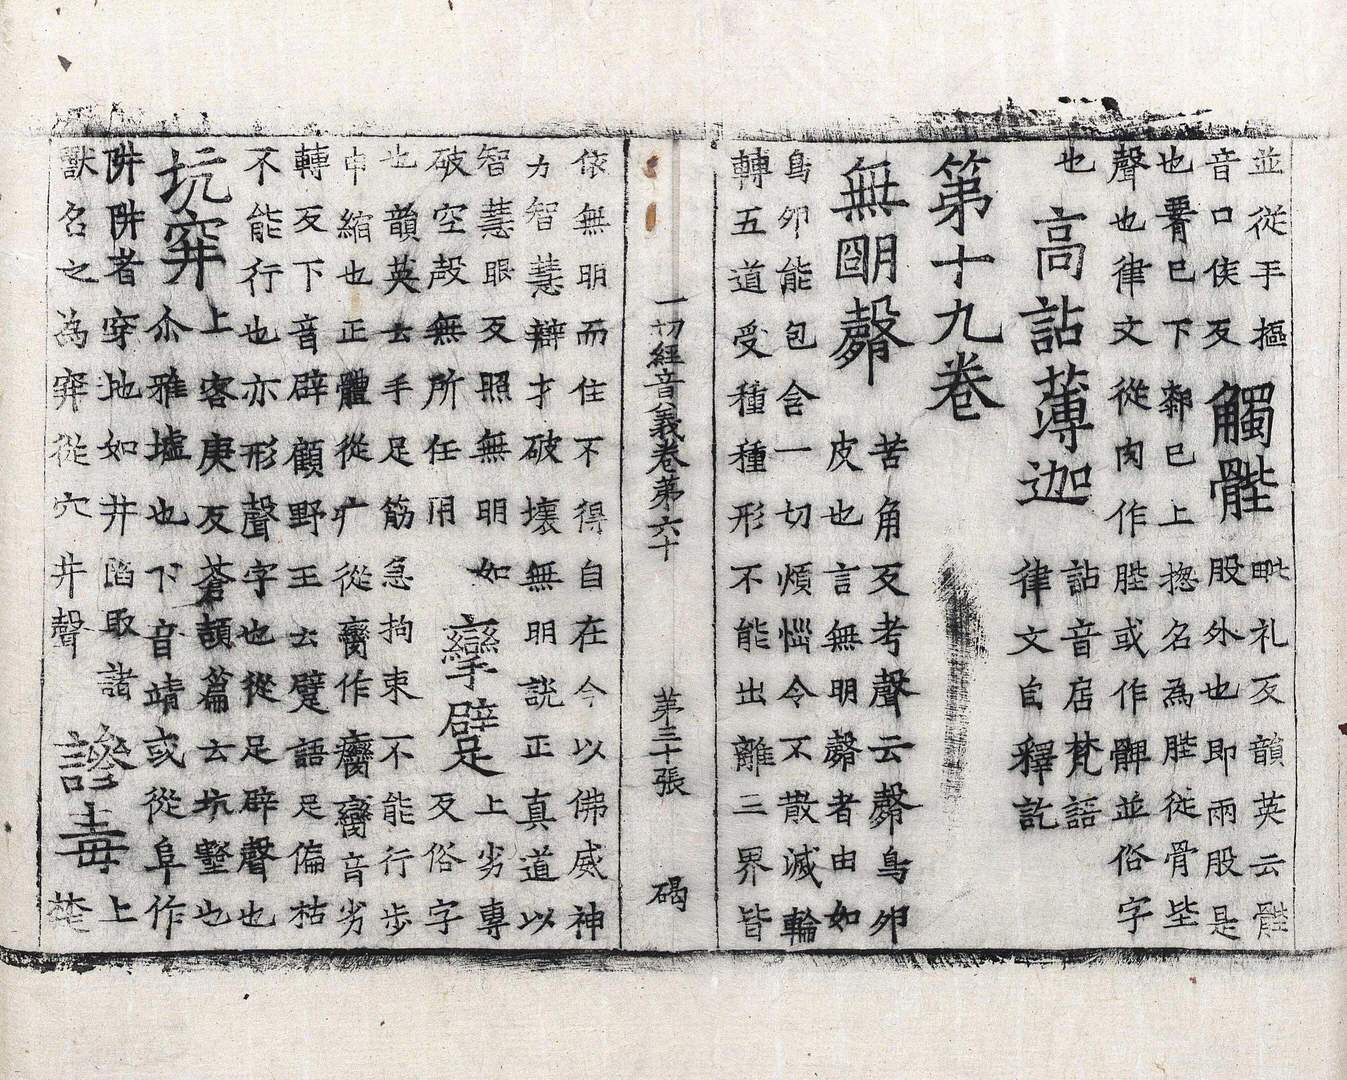 並從手摳
音口侯反
觸䏶
毗礼反韻英云䏶
股外也即兩股是
也䏶已下䣛已上揔名為䏶從骨坒
聲也律文從肉作䏶或作髀並俗字
也
高詀薄迦
詀音店梵語
律文自釋訖
第十九卷
無朙㲉
苦角反考聲云㲉鳥卵
皮也言無明㲉者由如
鳥卵能包含一切煩惱令不散滅輪
轉五道受種種形不能出離三界皆
一切經音義卷第六十 第三十張 碣
依無明而住不得自在今以佛威神
力智慧辯才破壞無明説正真道以
智慧眼反照無明如
破空㲉無所任用
攣躄
上劣專
反俗字
也韻英云手足筋急拘束不能行步
申縮也正體從疒從䜌作癴䜌音劣
轉反下音辟顧野王云躄語足偏枯
不能行也亦形聲字也從足辟聲也
坑穽
上客庚反蒼頡篇云坑壑也
尒雅墟也下音靖或從阜作
阱阱者穿地如井陷取諸
獸名之為穽從穴井聲
謲毒
上
楚